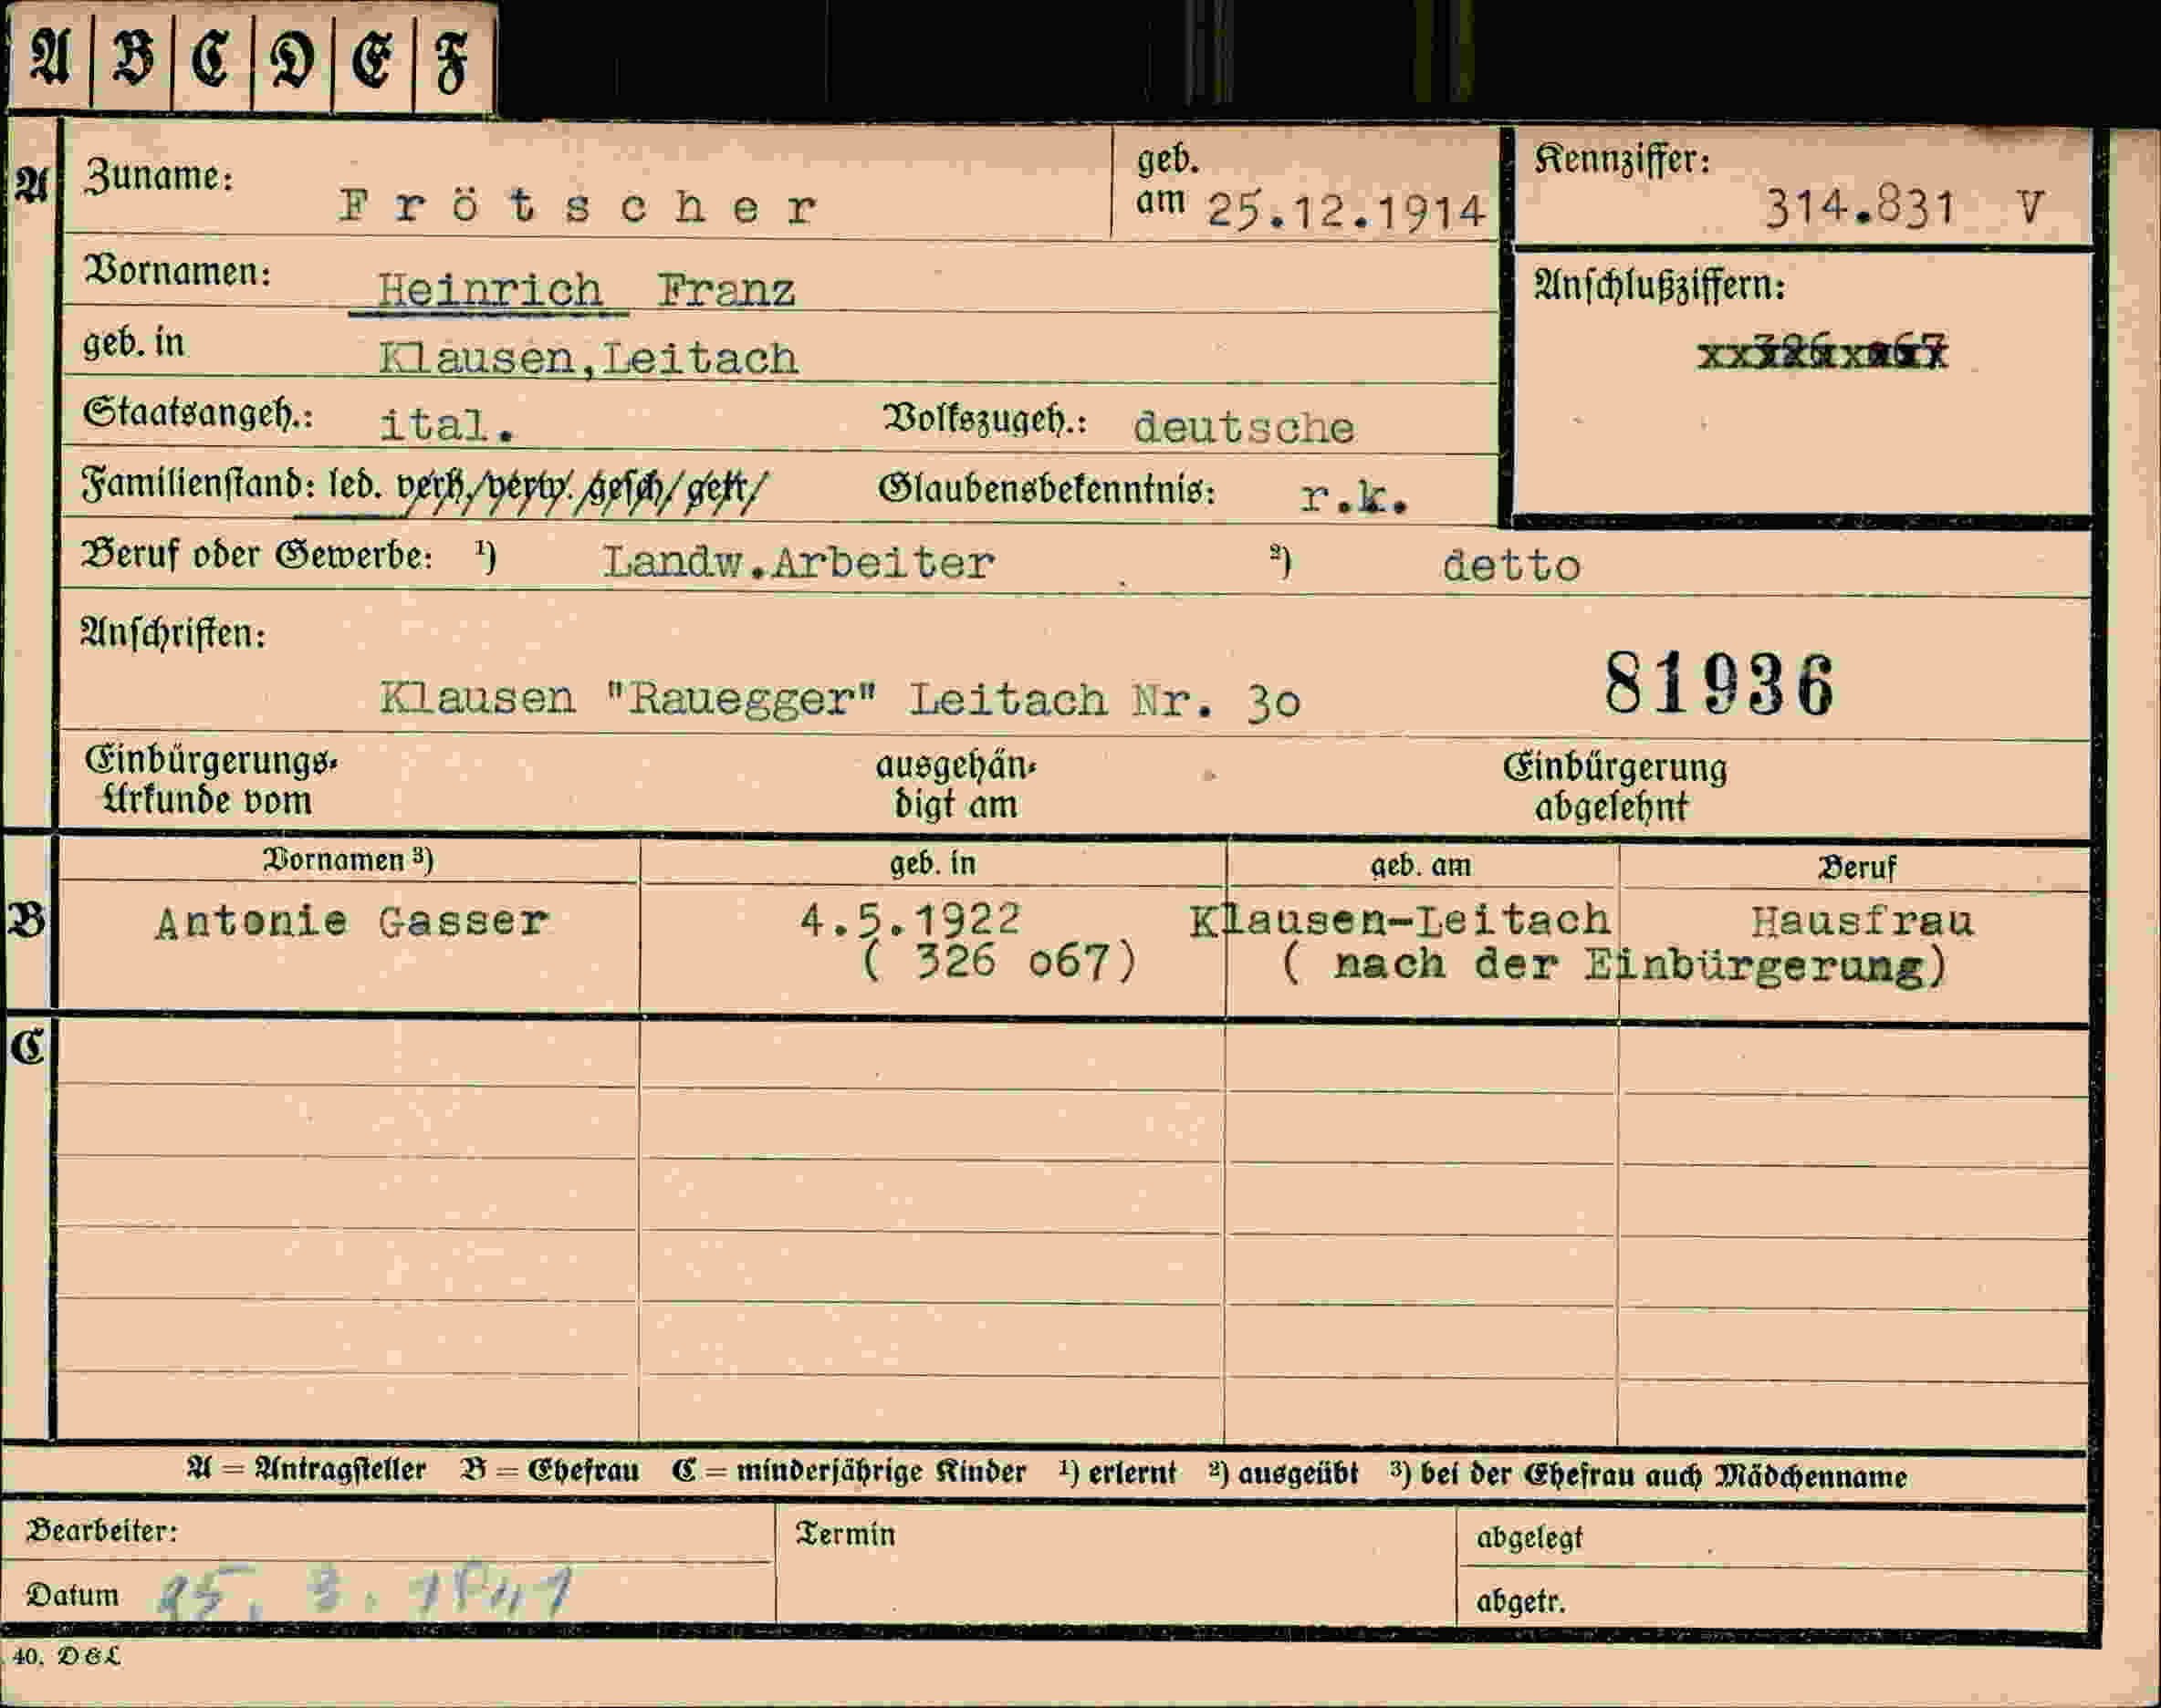 A B C D E F
A Zuname: Frötscher geb. am 25.12.1914 Kennziffer: 314.831 V
Vornamen: Heinrich Franz Anschlußziffern:
geb. in Klausen,Leitach
Staatsangeh.: ital. Volkszugeh.: deutsche
Familienstand: led. verh. verw. gesch. getr. Glaubensbekenntnis: r.k.
Beruf oder Gewerbe: ¹) Landw.Arbeiter ²) detto
Anschriften:
81936
Klausen "Rauegger" Leitach Nr. 3o
Einbürgerungs- ausgehän- Einbürgerung
Urkunde vom digt am abgelehnt
Vornamen ³) geb. in geb. am Beruf
B Antonie Gasser 4.5.1922 Klausen-Leitach Hausfrau
( 326 o67) ( nach der Einbürgerung)
C
A = Antragsteller B = Ehefrau C = minderjährige Kinder ¹) erlernt ²) ausgeübt ³) bei der Ehefrau auch Mädchenname
Bearbeiter: Termin abgelegt
Datum 3. 1941 abgetr.
40. D&L